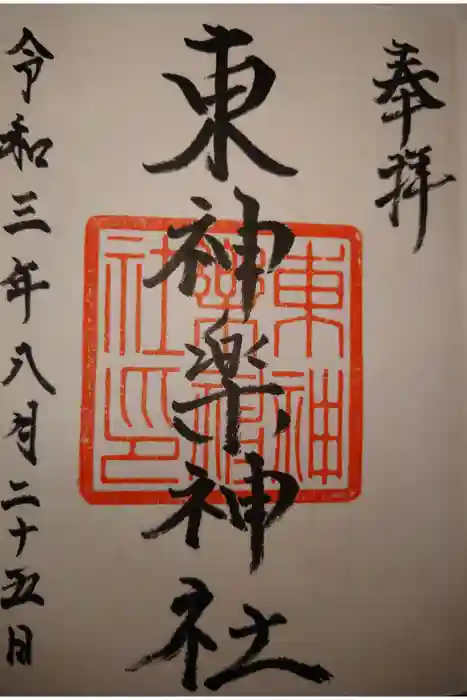 奉拝
東神楽神社
東神
楽神
社印
令和三年八月二十五日